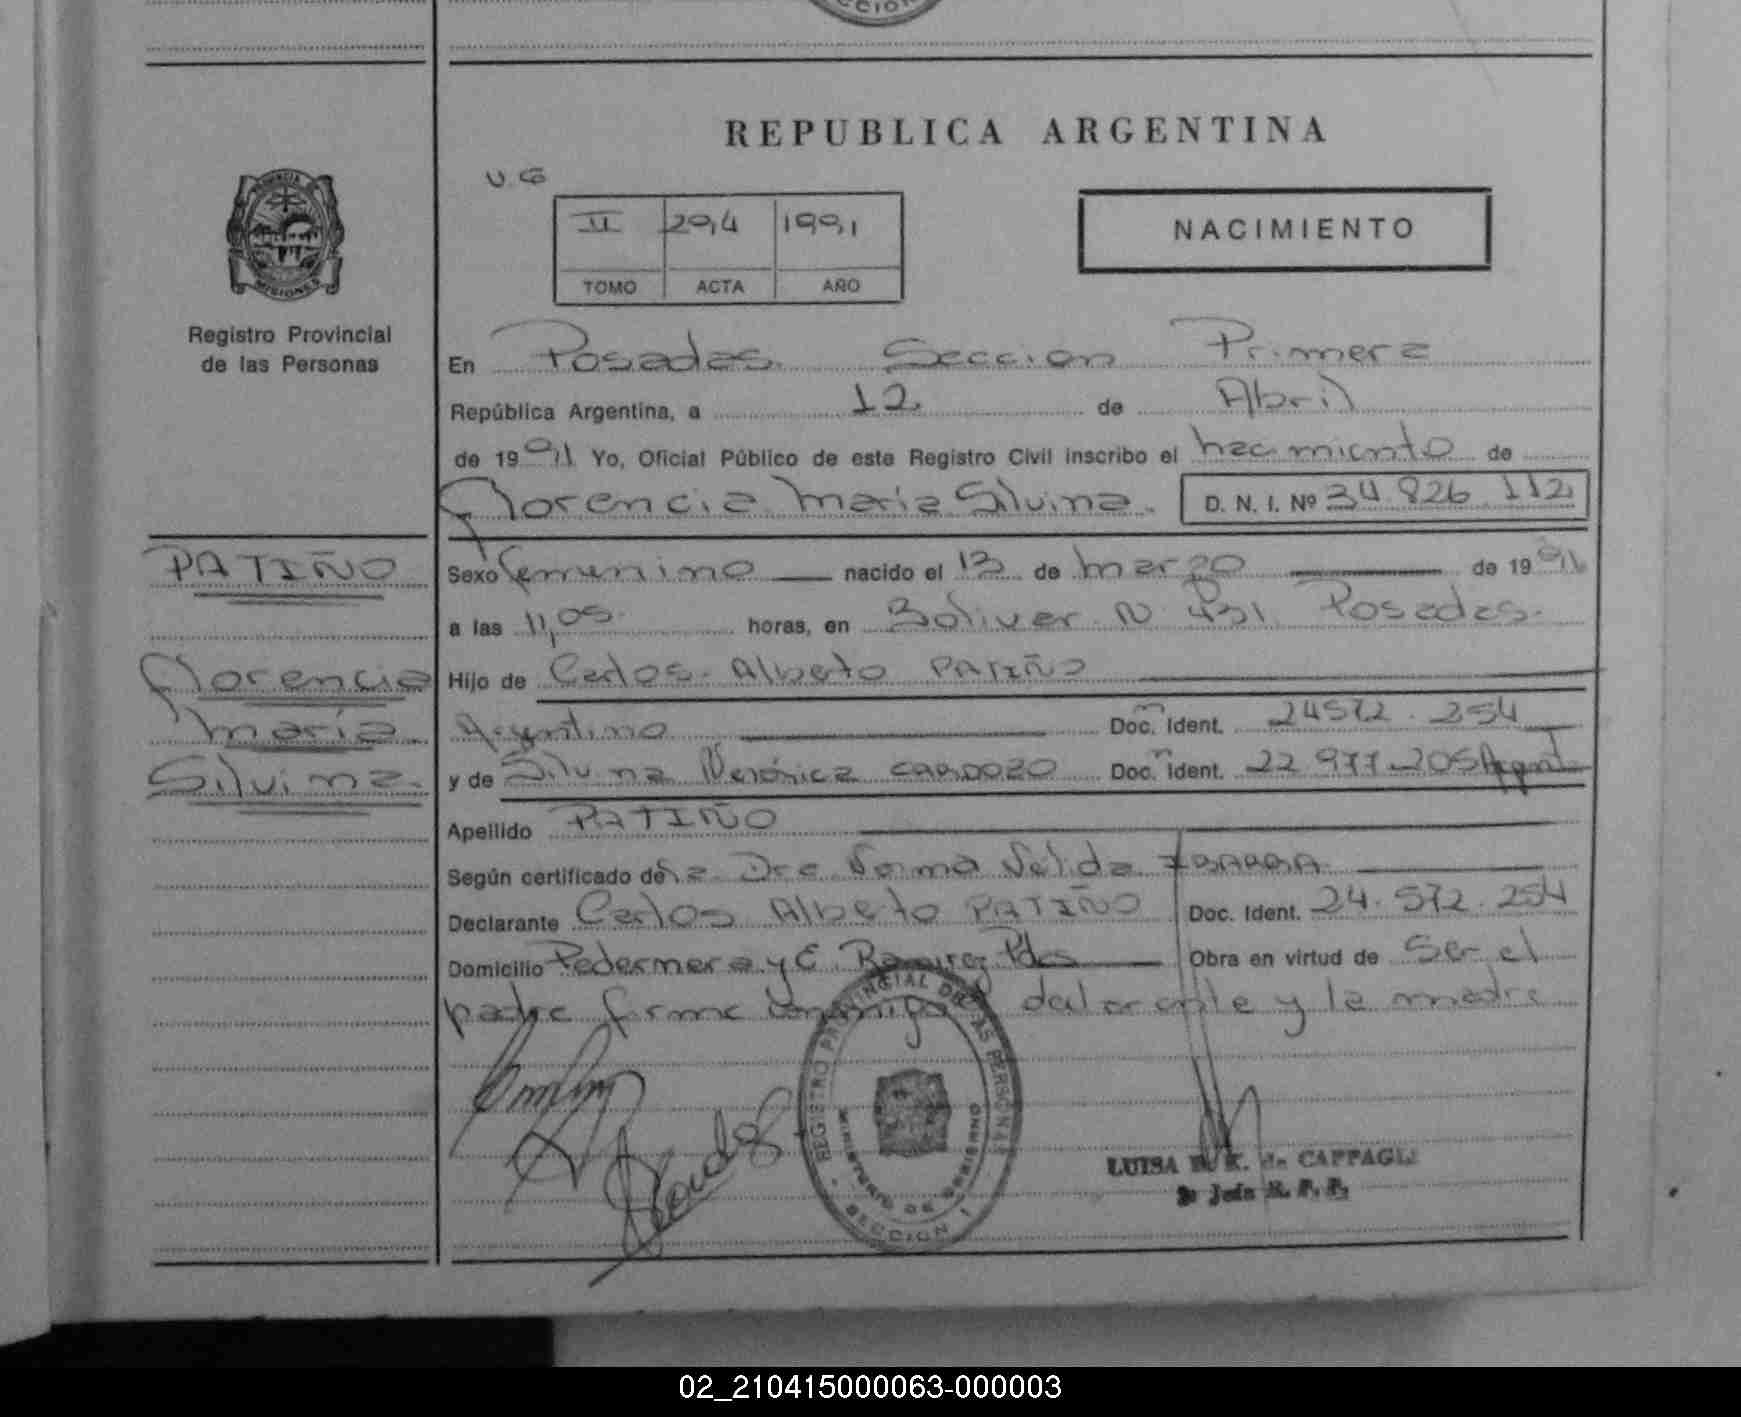 REPUBLICA ARGENTINA
U.G
II 294 1991
TOMO ACTA AÑO
NACIMIENTO
PROVINCIA DE
MISIONES
Registro Provincial
de las Personas
En Posadas Seccion Primera
República Argentina, a 12 de Abril
de 1991 Yo, Oficial Público de este Registro Civil inscribo el nacimiento de
Florencia Maria Silvina. D. N. I. Nº 34.826.112
PATIÑO
Florencia
María
Silvina.
Sexo femenino nacido el 13 de marzo de 1991
a las 11,05 horas, en Bolivar N 431 Posadas.
Hijo de Carlos Alberto PATIÑO
Argentino Doc. Ident. 24572.254
y de Silvina Verónica CARDOZO Doc. Ident. 22 977.205
Apellido PATIÑO
Según certificado de la Dra Norma Nelida YBARRA
Declarante Carlos Alberto PATIÑO Doc. Ident. 24.572.254
Domicilio Pedernera y E Ramirez Pdas Obra en virtud de Ser el
padre firma conmigo declarante y la madre
REGISTRO PROVINCIAL DE LAS PERSONAS
MINISTERIO DE GOBIERNO
SECCION 1
LUISA K. de CAPPAGLI
Jefa R. P. P.
02_210415000063-000003